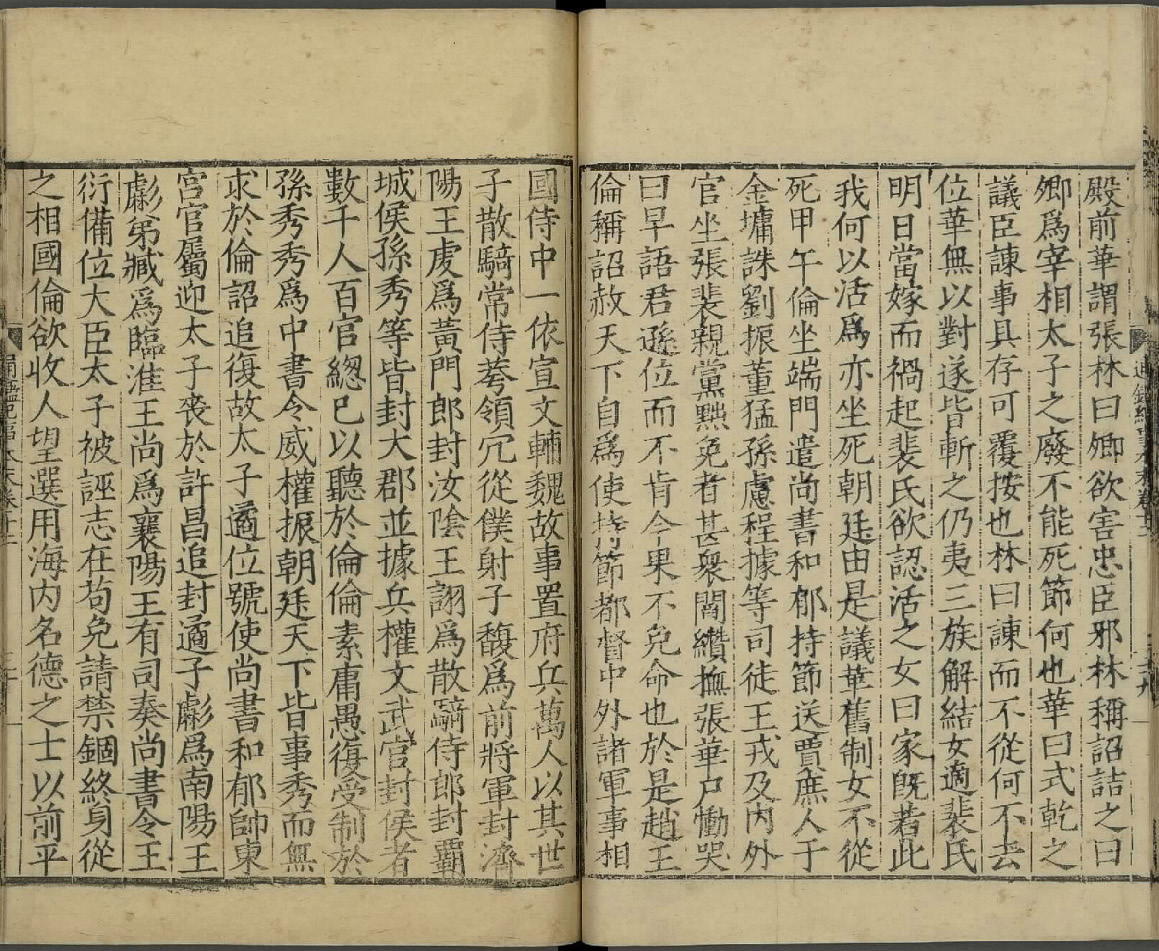 殿前華謂張林曰卿欲害忠臣邪林稱詔詰之曰
卿爲宰相太子之廢不能死節何也華曰式乾之
議臣諫事具存可覆按也林曰諫而不從何不去
位華無以對遂皆斬之仍夷三族解結女適裴氏
明日當嫁而禍起裴氏欲認活之女曰家旣若此
我何以活爲亦坐死朝廷由是議革舊制女不從
死甲午倫坐端門遣尚書和郁持節送賈庶人于
金墉誅劉振董猛孫慮程據等司徒王戎及內外
官坐張裴親黨黜免者甚衆閻纘撫張華尸慟哭
曰早語君遜位而不肯今果不免命也於是趙王
倫稱詔赦天下自爲使持節都督中外諸軍事相
國侍中一依宣文輔魏故事置府兵萬人以其世
子散騎常侍荂領冗從僕射子馥爲前將軍封濟
陽王虔爲黃門郎封汝陰王詡爲散騎侍郎封霸
城侯孫秀等皆封大郡並據兵權文武官封侯者
數千人百官總已以聽於倫倫素庸愚復受制於
孫秀秀爲中書令威權振朝廷天下皆事秀而無
求於倫詔追復故太子遹位號使尚書和郁帥東
宮官屬迎太子喪於許昌追封遹子虨爲南陽王
虨弟臧爲臨淮王尚爲襄陽王有司奏尚書令王
衍備位大臣太子被誣志在苟免請禁錮終身從
之相國倫欲收人望選用海內名德之士以前平